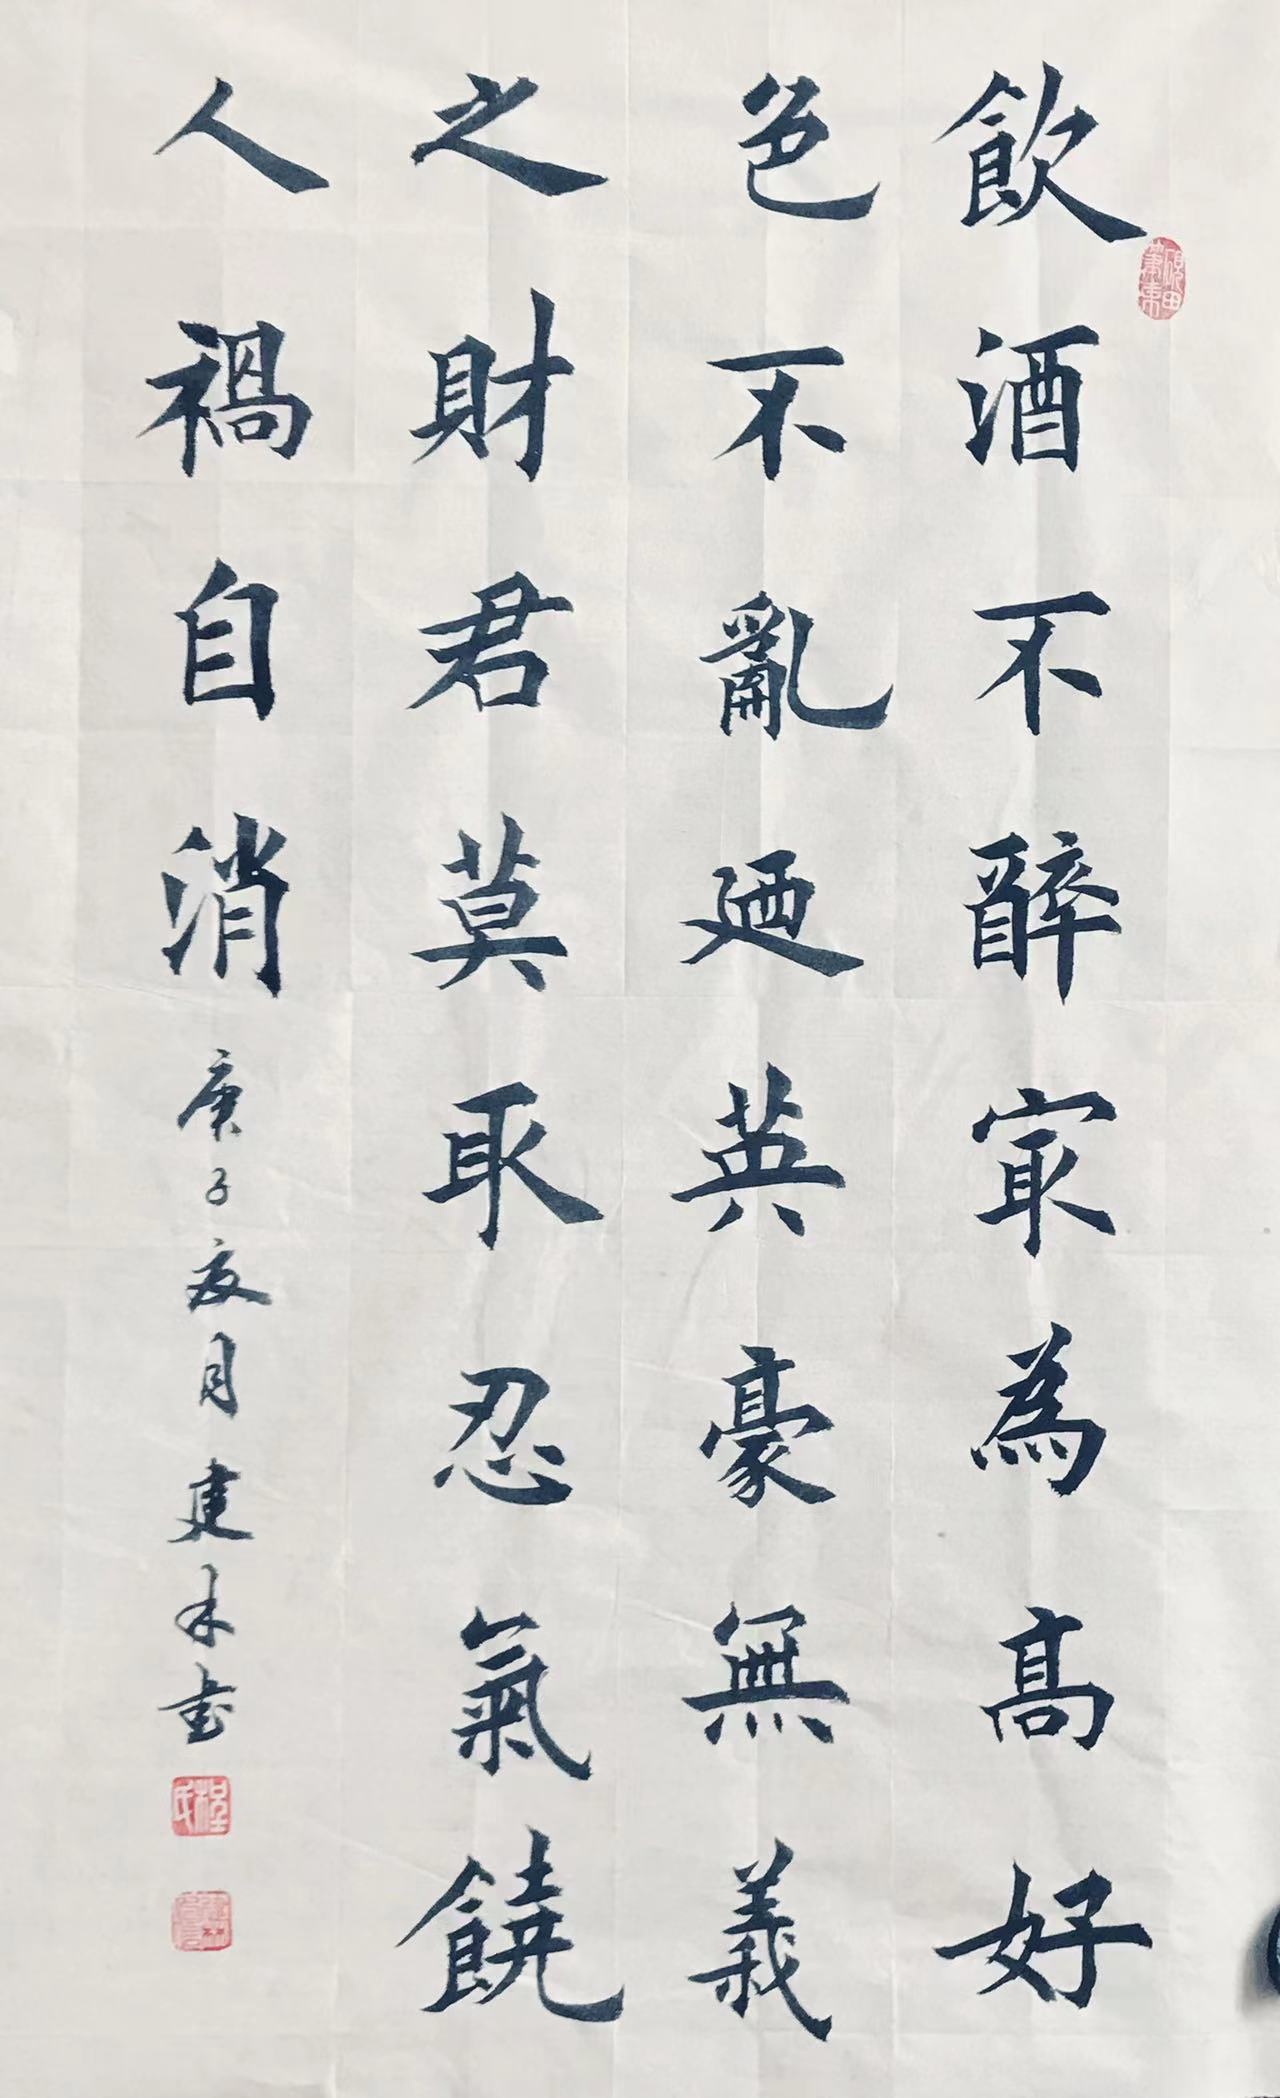 飲酒不醉最為高好
色不亂廼英豪無義
之財君莫取忍氣饒
人禍自消
庚子夏月建林书
程氏